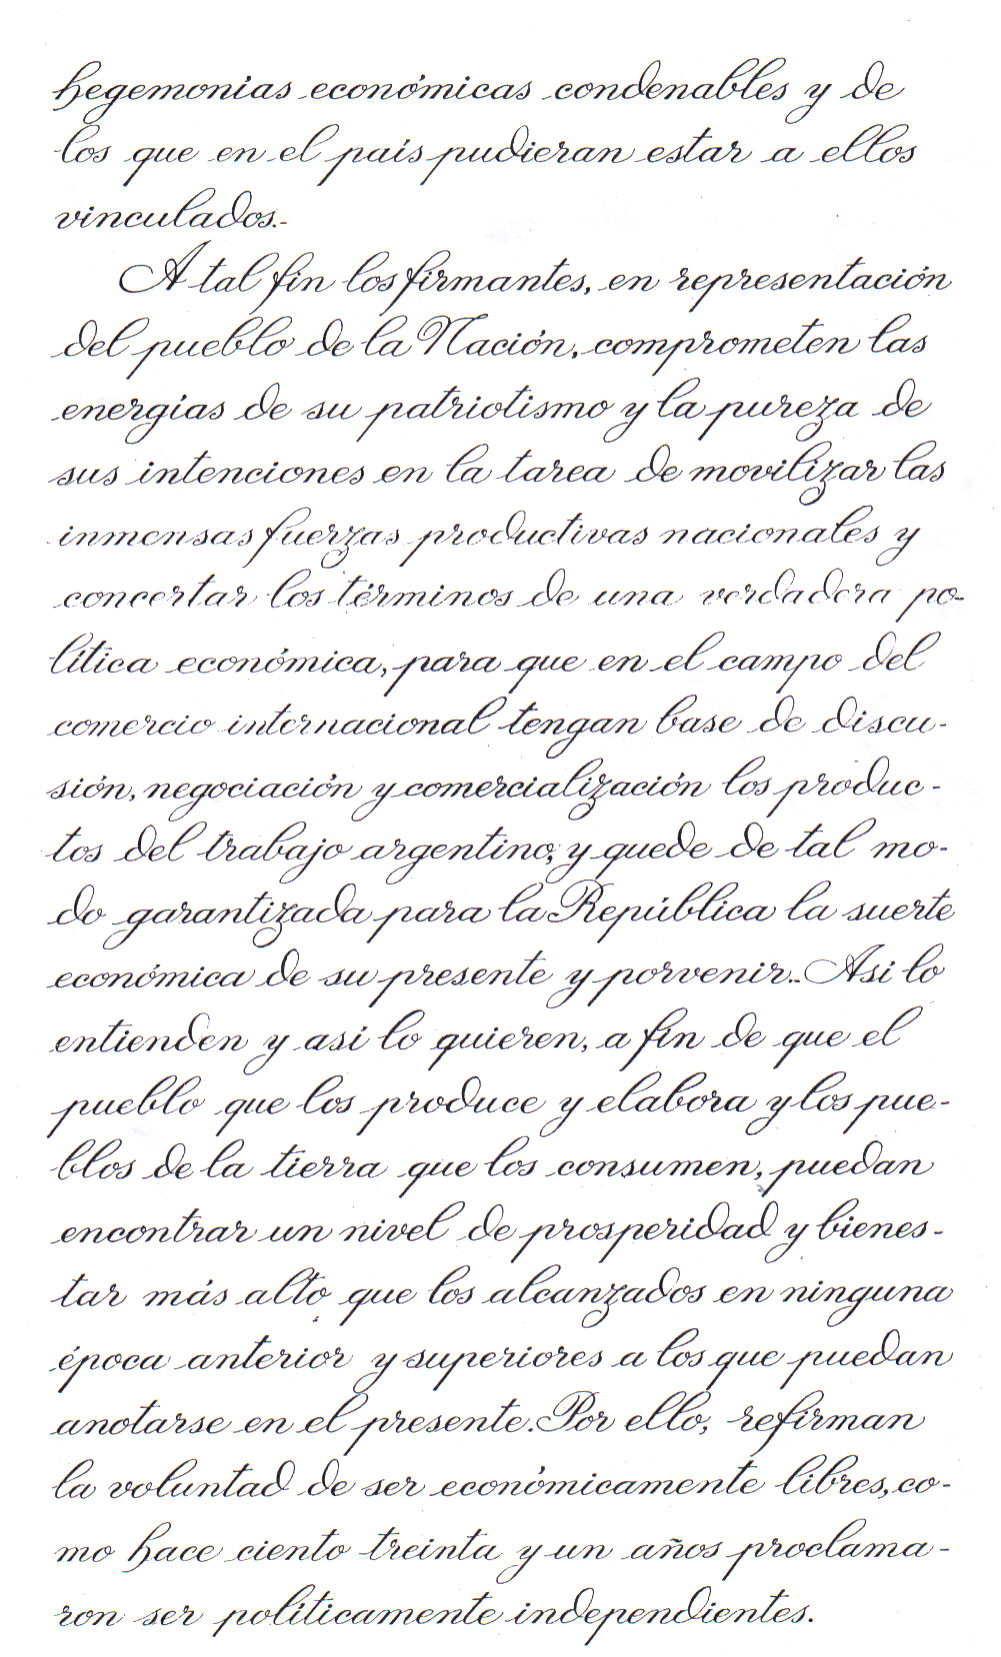 hegemonias económicas condenables y de
los que en el país pudieran estar a ellos
vinculados.-
A tal fin los firmantes, en representación
del pueblo de la Nación, comprometen las
energías de su patriotismo y la pureza de
sus intenciones en la tarea de movilizar las
inmensas fuerzas productivas nacionales y
concertar los términos de una verdadera po-
lítica económica, para que en el campo del
comercio internacional tengan base de discu-
sión, negociación y comercialización los produc-
tos del trabajo argentino, y quede de tal mo-
do garantizada para la República la suerte
económica de su presente y porvenir.. Asi lo
entienden y asi lo quieren, a fin de que el
pueblo que los produce y elabora y los pue-
blos de la tierra que los consumen, puedan
encontrar un nivel de prosperidad y bienes-
tar más alto que los alcanzados en ninguna
época anterior y superiores a los que puedan
anotarse en el presente. Por ello, refirman
la voluntad de ser económicamente libres, co-
mo hace ciento treinta y un años proclama-
ron ser políticamente independientes.